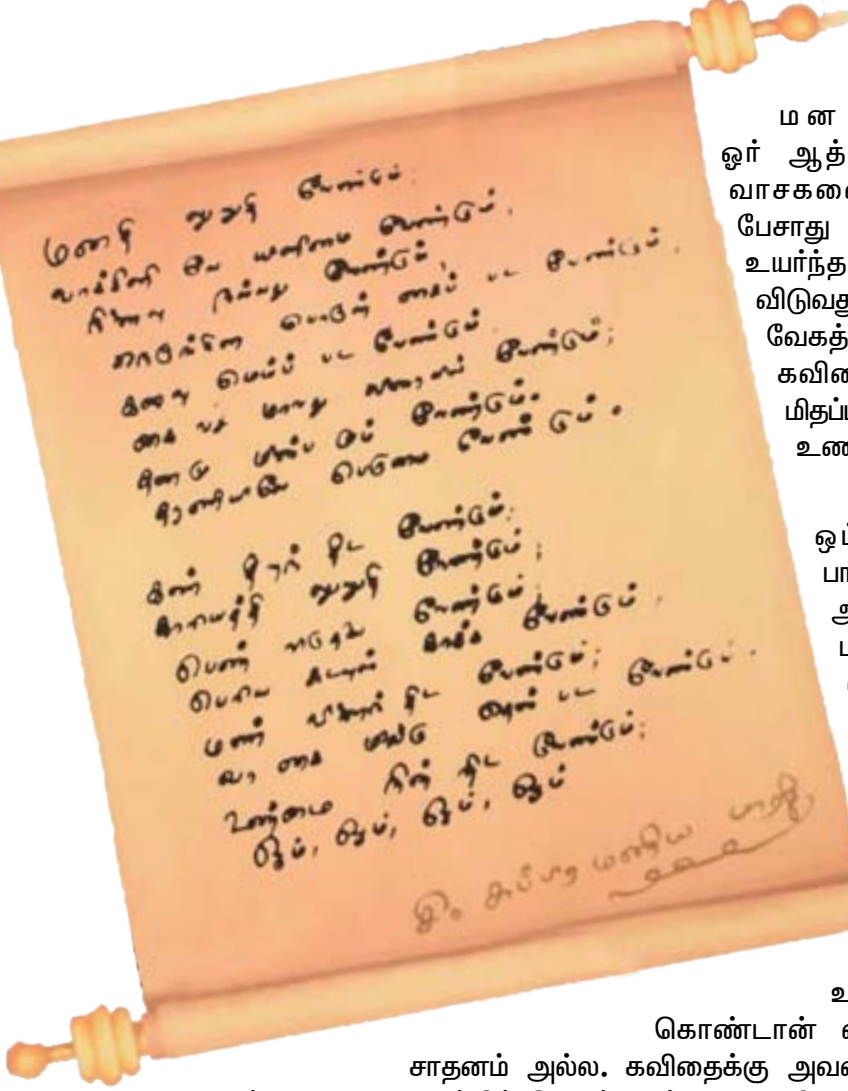 மனதி லுறுதி வேண்டும்.
வாக்கினி லே யினிமை வேண்டும்.
நினைவு நல்லது வேண்டும்,
நெருங்கின பொருள் கைப் பட வேண்டும்.
கனவு மெய்ப் பட வேண்டும்.
கை வச மாவது விரைவில் வேண்டும்;
தனமு மின்ப மும் வேண்டும்.
தரணியிலே பெருமை வேண்டும்.
கண் திறந் திட வேண்டும்;
காரியத்தி லுறுதி வேண்டும்;
பெண் விடுதலை வேண்டும்;
பெரிய கடவுள் காக்க வேண்டும்.
மண் திட வேண்டும்;
வா னக மிங்கு தென் பட வேண்டும்.
உண்மை நின் றிட வேண்டும்;
ஓம், ஓம், ஓம், ஓம்
சுப்பிர மணிய பாரதி
மன
ஓர் ஆத்
வாசகனை
பேசாது
உயர்ந்த
விடுவது
வேகத்
கவிதை
மிதப்ப
உண
ஒப்
பா
அ
உ
கொண்டான்
சாதனம் அல்ல. கவிதைக்கு அவ